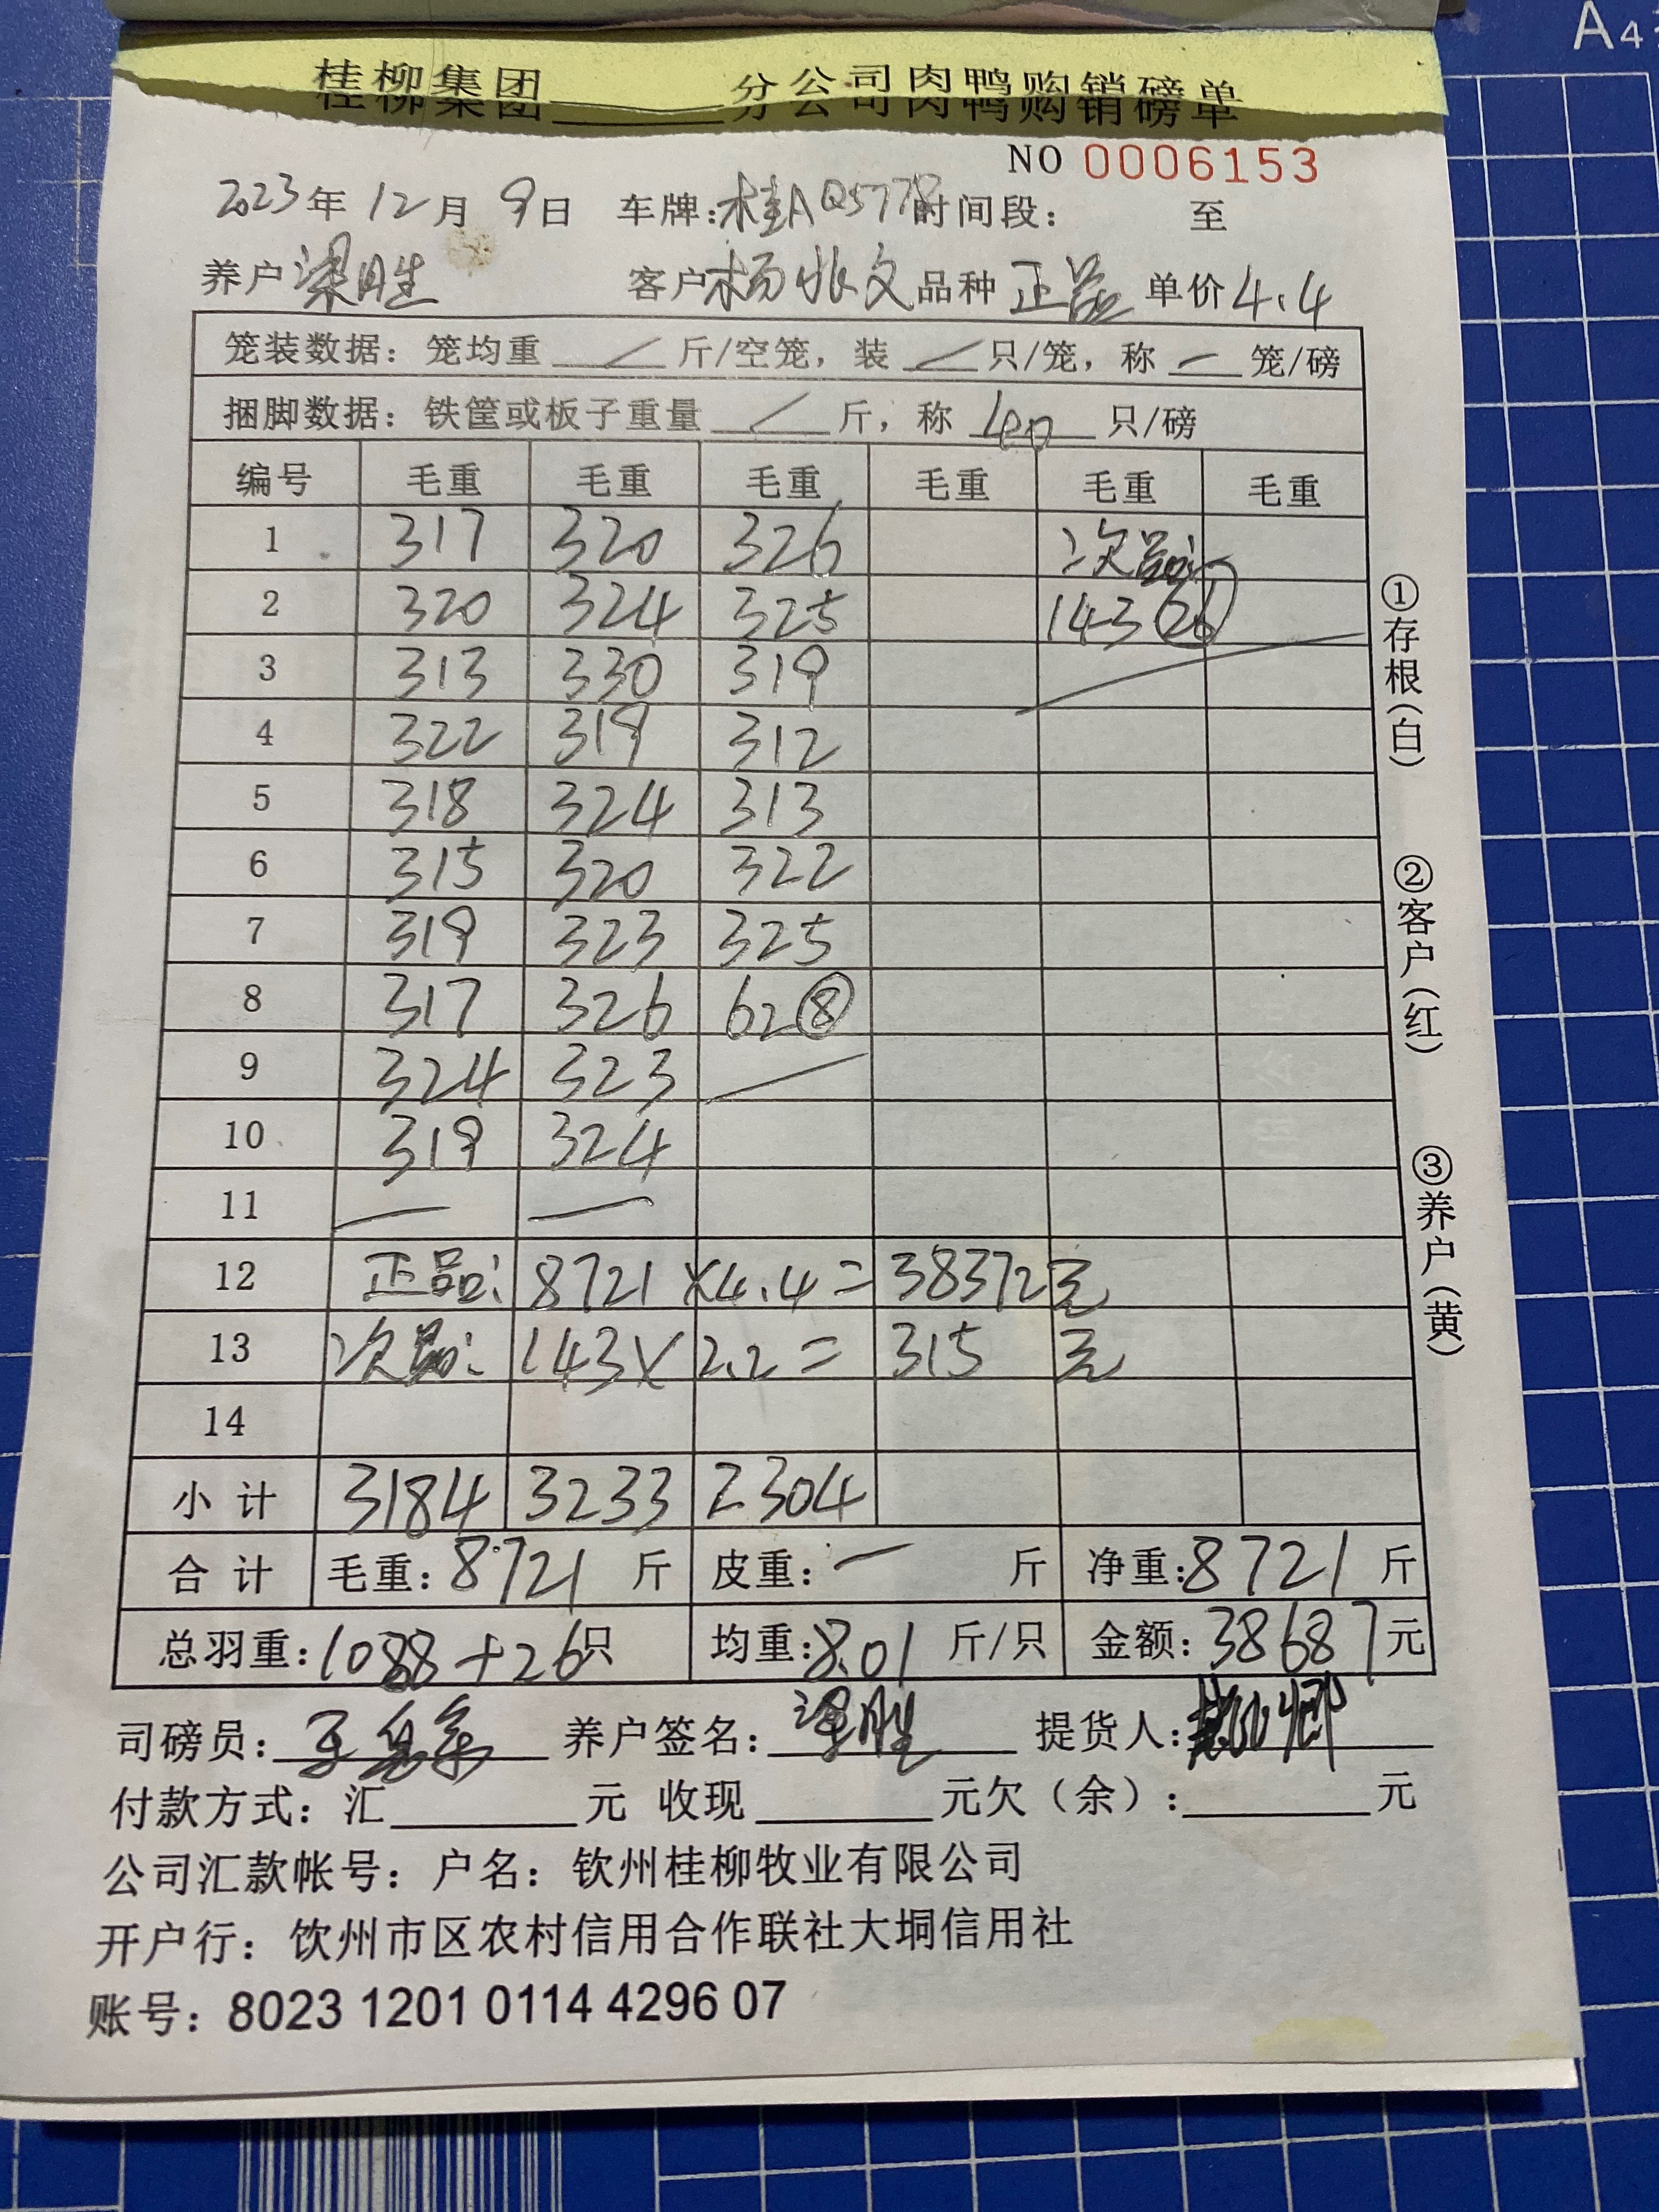 桂柳集团______分公司肉鸭购销磅单
NO 0006153
2023年 12月 9日 车牌:桂AQ577 时间段: 至
养户 梁胜 客户 杨 文 品种 正品 单价 4.4
笼装数据: 笼均重 / 斤/空笼, 装 / 只/笼, 称 — 笼/磅
捆脚数据: 铁筐或板子重量 / 斤, 称 40 只/磅
编号 毛重 毛重 毛重 毛重 毛重 毛重
1 317 320 326 次品:
2 320 324 325 143 (26)
3 313 330 319
4 322 319 312
5 318 324 313
6 315 320 322
7 319 323 325
8 317 326 62⑧
9 324 323
10 319 324
11 — —
12 正品: 8721 ×4.4= 38372元
13 次品: 143× 2.2= 315 元
14
小计 3184 3233 2304
合计 毛重: 8721 斤 皮重: — 斤 净重: 8721 斤
总羽重: 1088+26只 均重: 8.01 斤/只 金额: 38687元
司磅员: 养户签名: 梁胜 提货人:
付款方式: 汇______元 收现______元欠(余):______元
公司汇款帐号: 户名: 钦州桂柳牧业有限公司
开户行: 钦州市区农村信用合作联社大垌信用社
账号: 8023 1201 0114 4296 07
①存根(白)
②客户(红)
③养户(黄)
A4